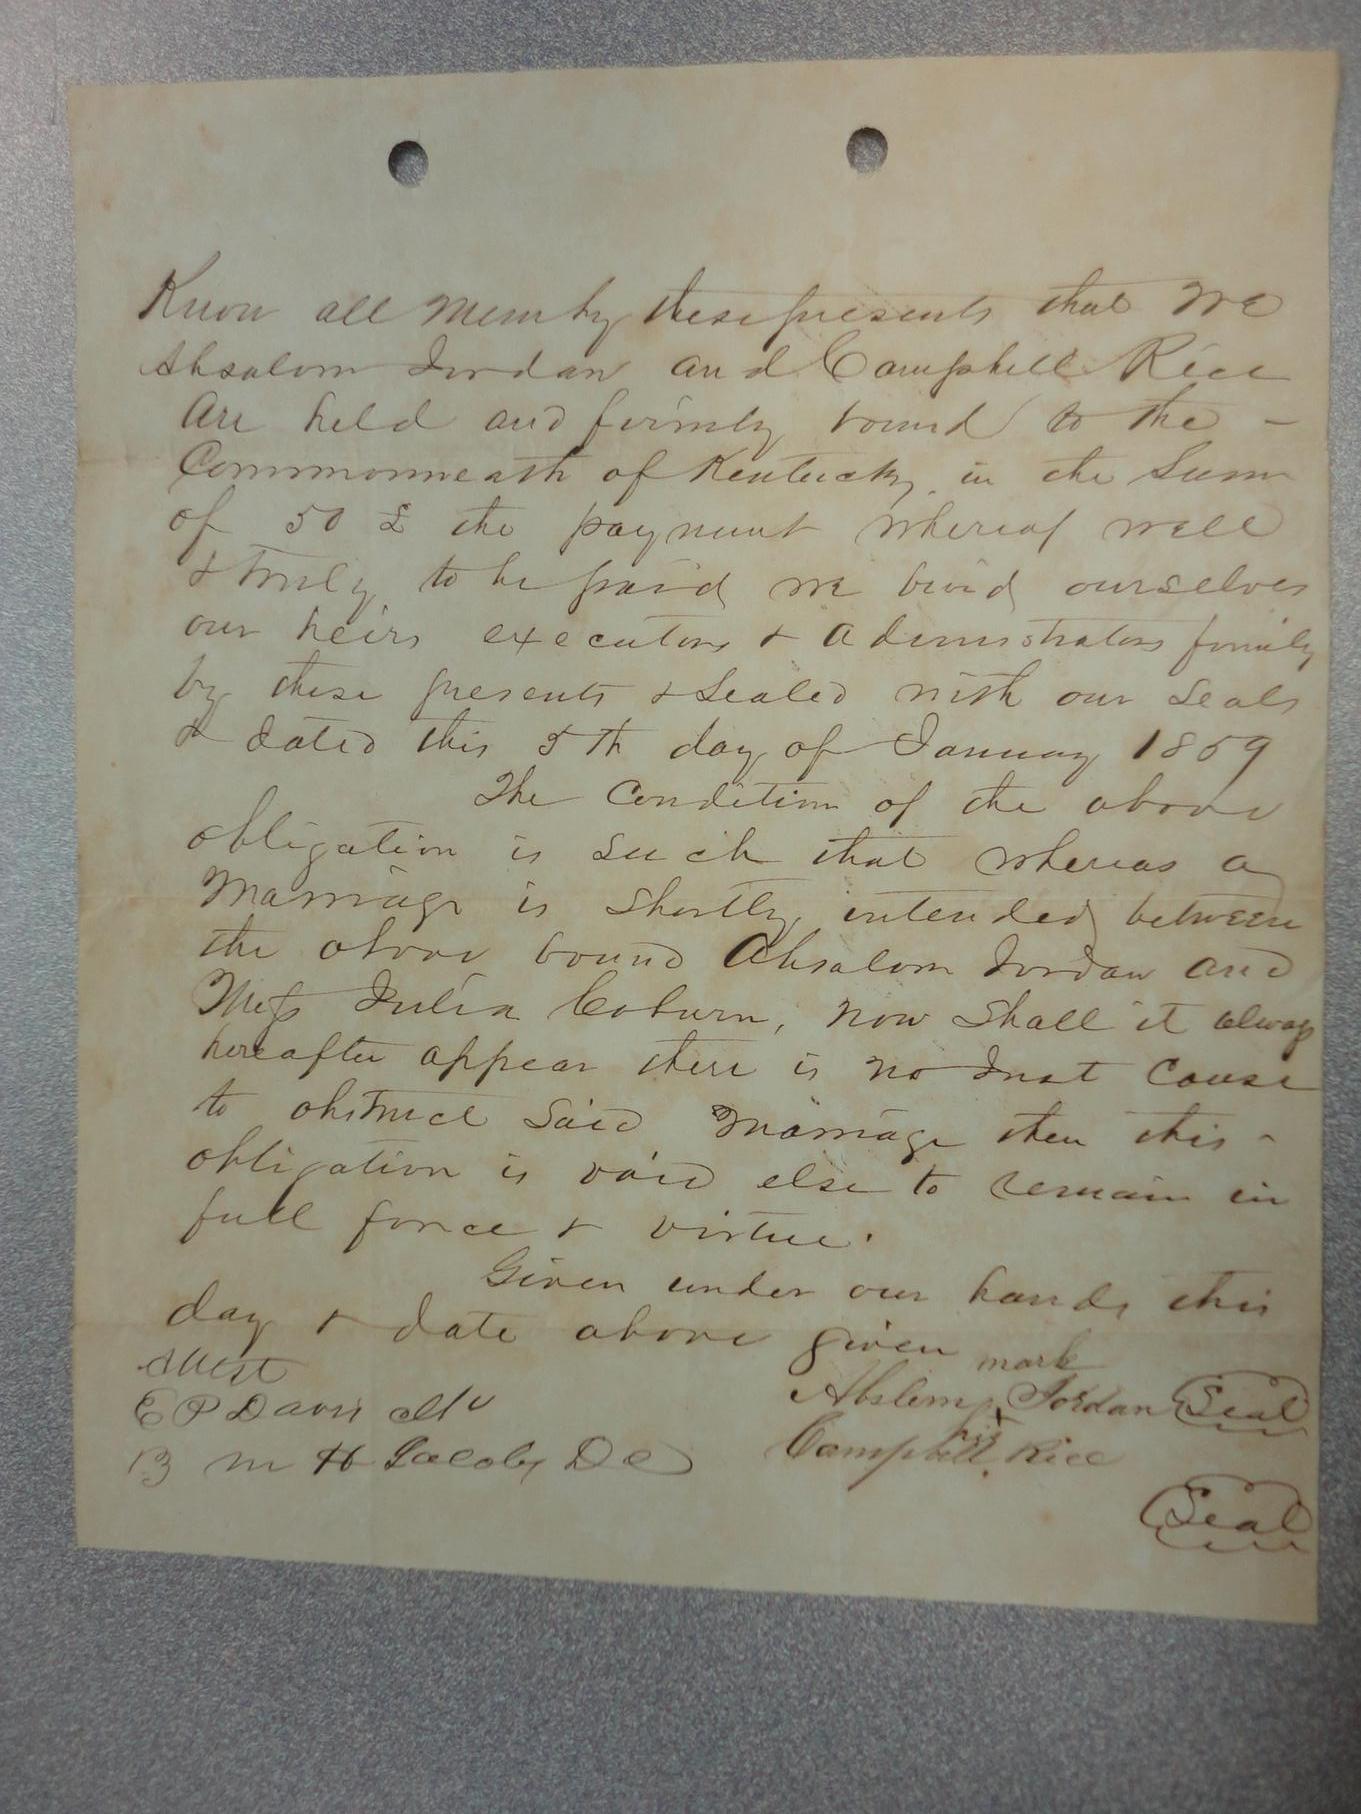 Know all Men by these presents that We
Absalom Jordan and Campbell Rice
Are held and firmly bound to the –
Commonweath of Kentucky in the Sum
of 50 £ the payment whereof well
& truly to be paid we bind ourselves
our heirs executors & Administrators firmly
by these presents & Sealed with our Seals
& dated this 5th day of January 1859
The Condition of the above
obligation is such that whereas a
Marriage is Shortly intended between
the above bound Absalom Jordan and
Miss Julia Coburn, now Shall it always
hereafter appear there is no Just Cause
to obstruct Said Marriage then this –
obligation is void else to remain in
full force & virtue.
Given under our hands this
day & date above given
Attest
mark
E P Davis Clk
Abslem x Jordan Seal
his
B m H Jacoby D C
Campbell Rice
Seal